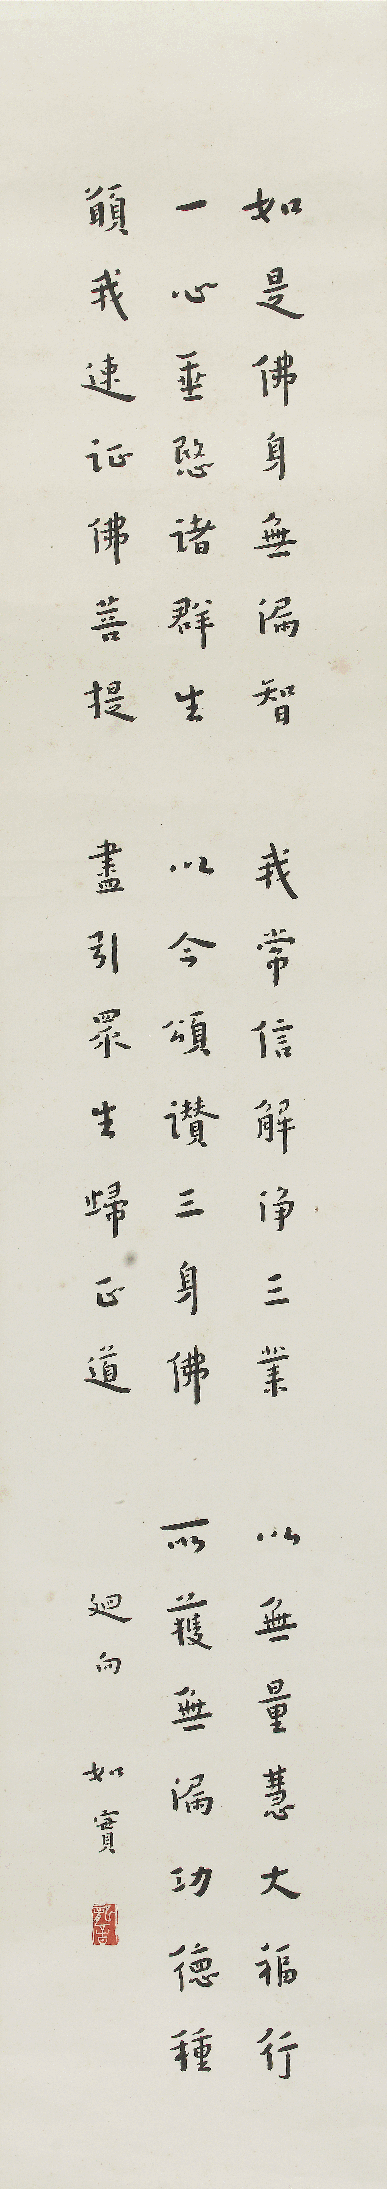 如是佛身無漏智　我常信解淨三業　以無量慧大福行
一心垂愍諸群生　以今頌讚三身佛　所獲無漏功德種
願我速証佛菩提　盡引眾生歸正道　廻向　如實